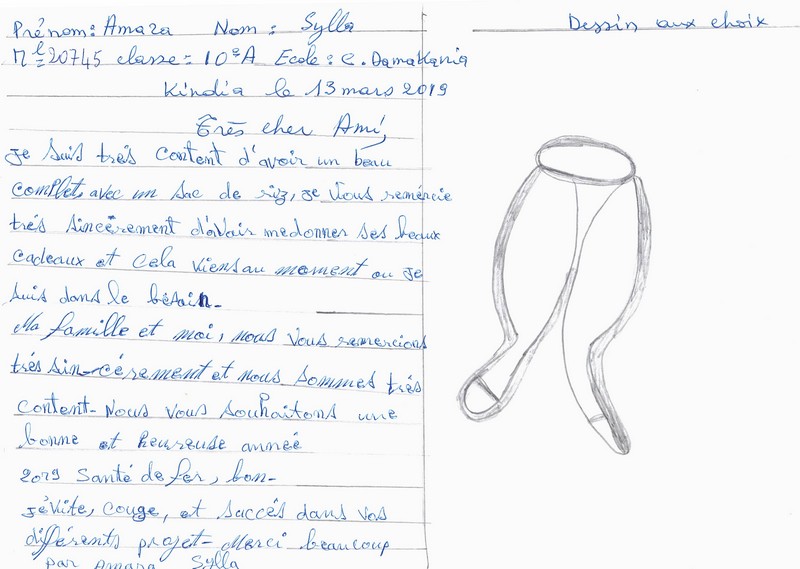 Prénom: Amara Nom: Sylla
N°20745 classe= 10eA Ecole: C. Damakania
Kindia le 13 mars 2019
Très cher Ami,
Je suis très content d'avoir un beau
complet, avec un sac de riz, je vous remércie
très sincèrement d'avair medonner ses beaux
cadeaux et cela viens au moment ou je
suis dans le bésoin.
Ma famille et moi, nous vous remercions
très sin-cérement et nous sommes très
content- Nous vous souhaitons une
bonne et heureuse année
2019 Santé de fer, bon-
gévite, couge, et succés dans vos
différents projet- Merci beaucoup
par Amara Sylla
Dessin aux choix